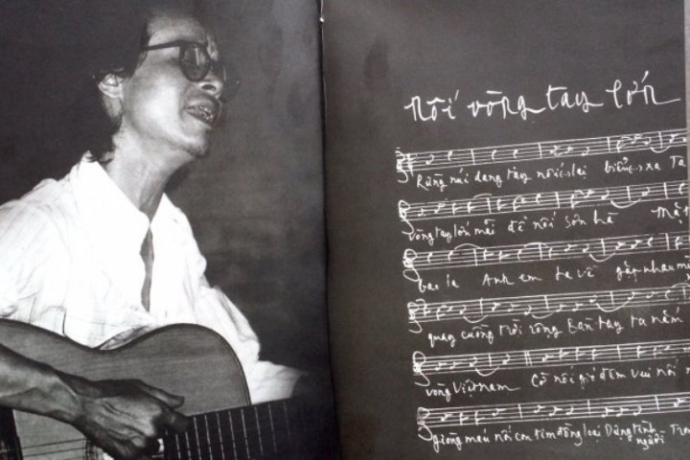 nối vòng tay lớn
Rừng núi dang tay nối lại biển xa Ta
vòng tay lớn mãi để nối sơn hà Mặt
bao la Anh em ta về gặp nhau
quay cuồng trời rộng Bàn tay ta nắm
vòng Việt Nam Cờ nối gió đêm vui nối
giòng máu nối con tim đồng loại Dựng tình người Tron